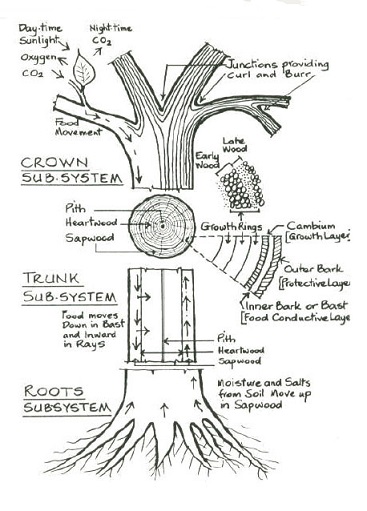 Day-time
Sunlight
Oxygen
CO₂
Night-time
CO₂
Junctions providing
curl and Burr
Food
Movement
CROWN
SUB-SYSTEM
Late
Wood
Early
Wood
Pith
Heartwood
Sapwood
Growth Rings
Cambium
[Growth Layer]
Outer Bark
[Protective Laye
Inner Bark or Bast
[Food Conductive Laye
TRUNK
SUB-SYSTEM
Food moves
Down in Bast
and Inward
in Rays
Pith
Heartwood
Sapwood
ROOTS
SUBSYSTEM
Moisture and Salts
from Soil Move up
in Sapwood